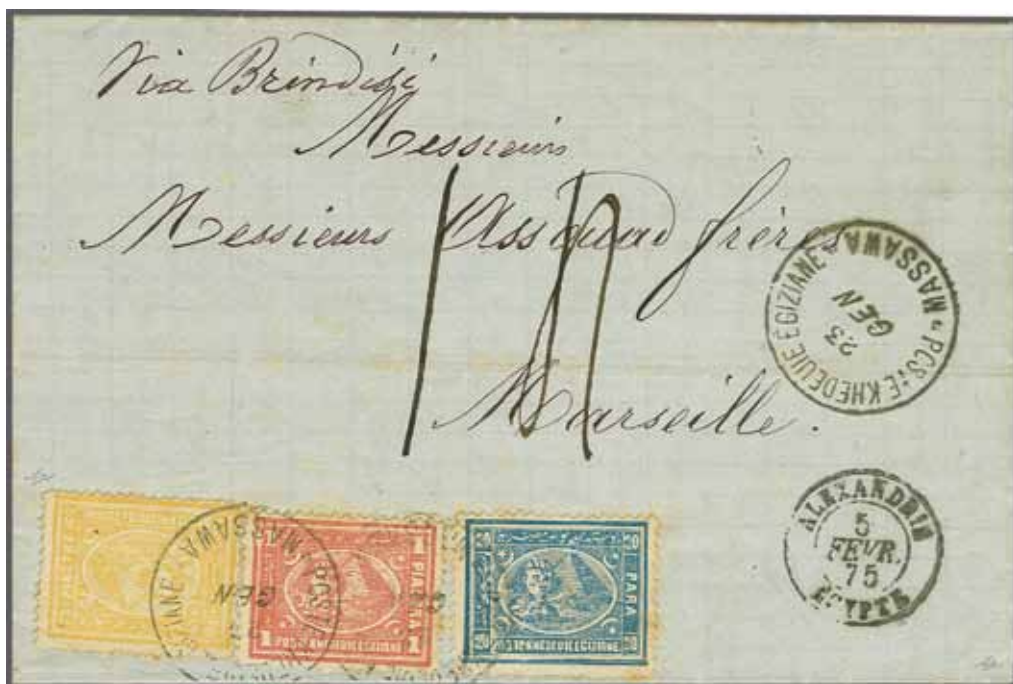 Via Brindisi
Messieurs
Messieurs Assouad frères
Marseille.
MASSAWA
POSTE KHEDEUIE EGIZIANE
23
GEN
ALEXANDRIE
5
FEVR.
75
EGYPTE
MASSAWA
GEN
1 PIASTRA 1
1 POSTE KHEDEUIE EGIZIANE 1
20 PARA 20
20 POSTE KHEDEUIE EGIZIANE 20